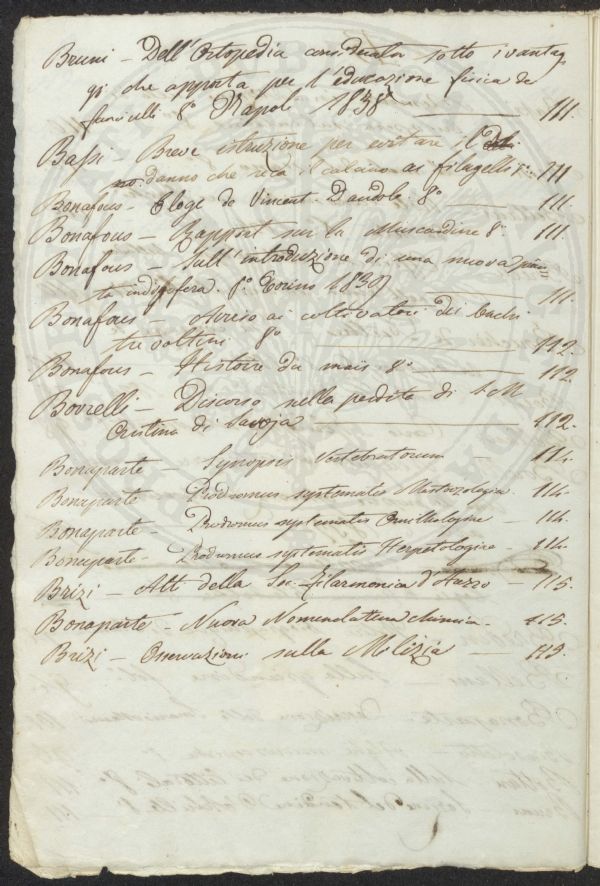 Bruni - Dell'Ortopedia considerata sotto i vantag
gi che apporta per l'educazione fisica de
fanciulli 8° Napoli 1838 111.
Bassi - Breve istruzione per evitare il
danno che reca il calcino ai filugelli 111
Bonafous - Eloge de Vincent Dandolo 8° 111.
Bonafous - Rapport sur la Muscardine 8° 111.
Bonafous - Sull'introduzione di una nuova pian
ta indigofera 8° Torino 1839 111.
Bonafous - Avviso ai coltivatori dei bachi
trevoltini 8° 112.
Bonafous - Histoire du maïs 8° 112
Borrelli - Discorso nella perdita di S M
Cristina di Savoja 112.
Bonaparte - Synopsis Vertebratorum - 114.
Bonaparte - Prodromus systematis Mastozologiae 114.
Bonaparte - Prodromus systematis Ornithologiae - 114.
Bonaparte - Prodromus systematis Herpetologiae - 114.
Brizi - Atti della Soc. filarmonica d'Arezzo - 115.
Bonaparte - Nuova Nomenclatura chimica - 115.
Brizi - Osservazioni sulla Milizia - 119.